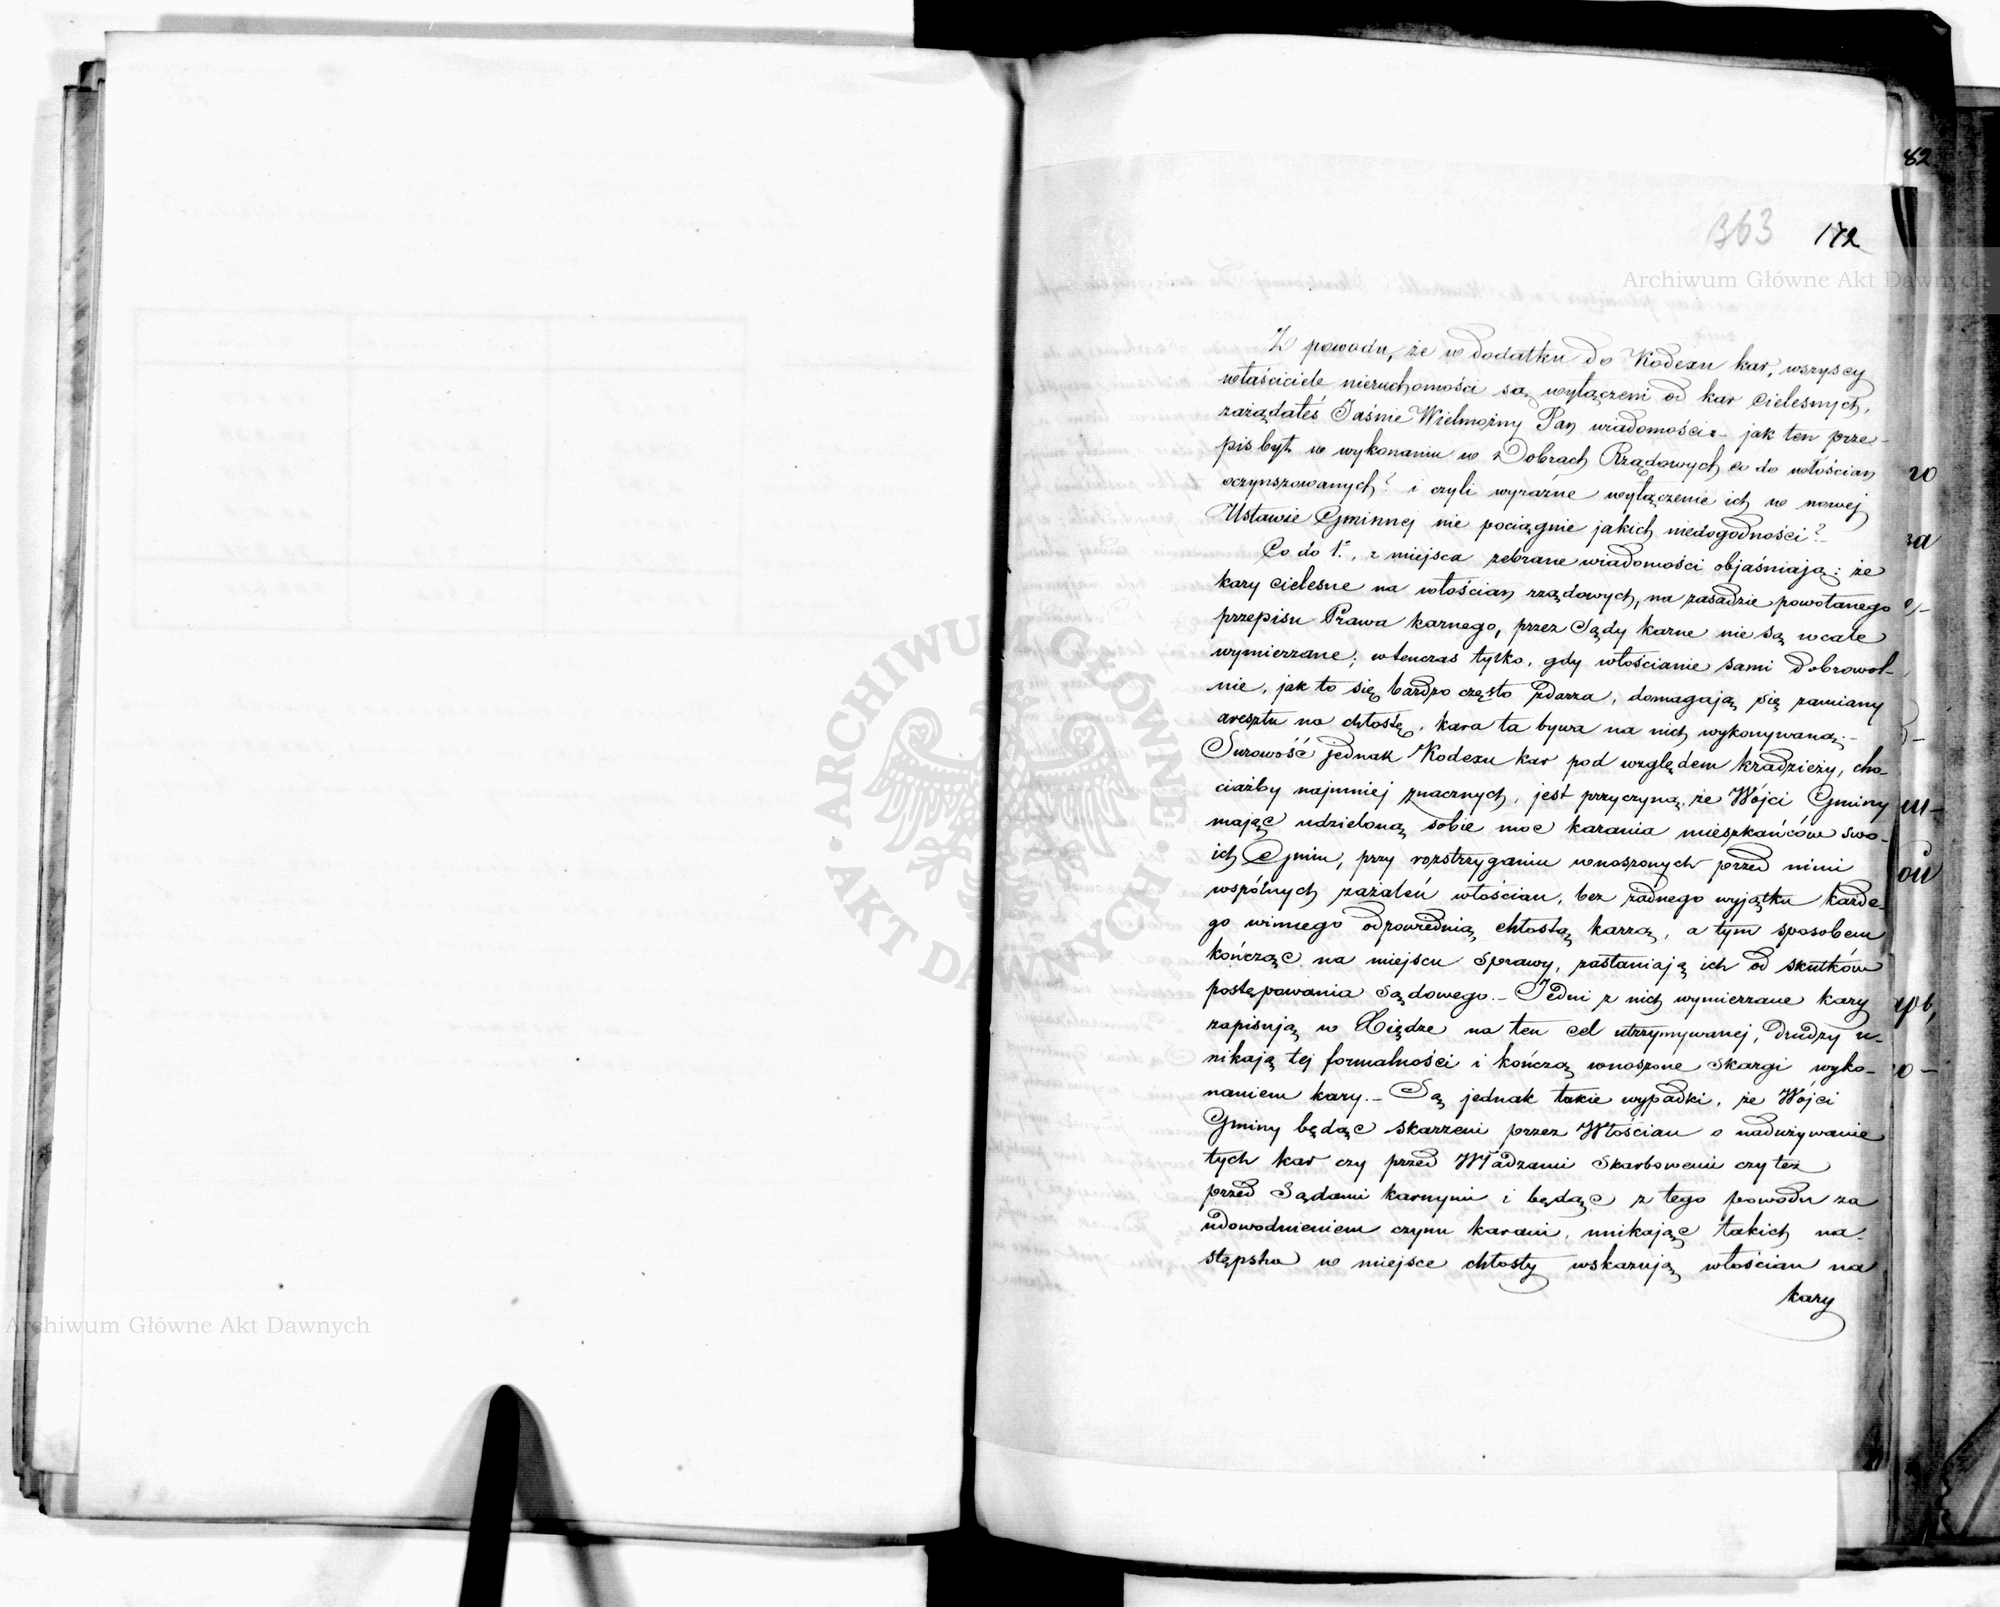 82
363 172
Archiwum Główne Akt Dawnych
Z powodu, że w dodatku do Kodexu kar, wszyscy
właściciele nieruchomości są wyłączeni od kar cielesnych,
zażądałeś Jaśnie Wielmożny Pan wiadomości:- jak ten prze-
pis był w wykonaniu w Dobrach Rządowych co do włościan
oczynszowanych? i czyli wyraźne wyłączenie ich w nowej
Ustawie Gminnej nie pociągnie jakich niedogodności?-
Co do 1., z miejsca zebrane wiadomości objaśniają: że
kary cielesne na włościan rządowych, na zasadzie powołanego
przepisu Prawa karnego, przez Sądy karne nie są wcale
wymierzane; wtenczas tylko, gdy włościanie sami dobrowol-
nie, jak to się bardzo często zdarza, domagają się zamiany
aresztu na chłostę, kara ta bywa na nich wykonywaną.-
Surowość jednak Kodexu kar pod względem kradzieży, cho-
ciażby najmniej znacznych, jest przyczyną, że Wójci Gminy
mając udzieloną sobie moc karania mieszkańców swo-
ich Gmin, przy rozstrzyganiu wnoszonych przed nimi
wspólnych zażaleń włościan, bez żadnego wyjątku każde-
go winnego odpowiednią chłostą karzą, a tym sposobem
kończąc na miejscu sprawy, zasłaniają ich od skutków
postępowania sądowego.- Jedni z nich wymierzane kary
zapisują w Księdze na ten cel utrzymywanej, drudzy u-
nikają tej formalności i kończą wnoszone skargi wyko-
naniem kary.- Są jednak takie wypadki, że Wójci
Gminy będąc skarżeni przez Włościan o nadużywanie
tych kar czy przed Władzami Skarbowemi czy też
przed Sądami karnymi i będąc z tego powodu za
udowodnieniem czynu karani, unikając takich na-
stępstw w miejsce chłosty wskazują włościan na
kary
ARCHIWUM GŁÓWNE AKT DAWNYCH
Archiwum Główne Akt Dawnych